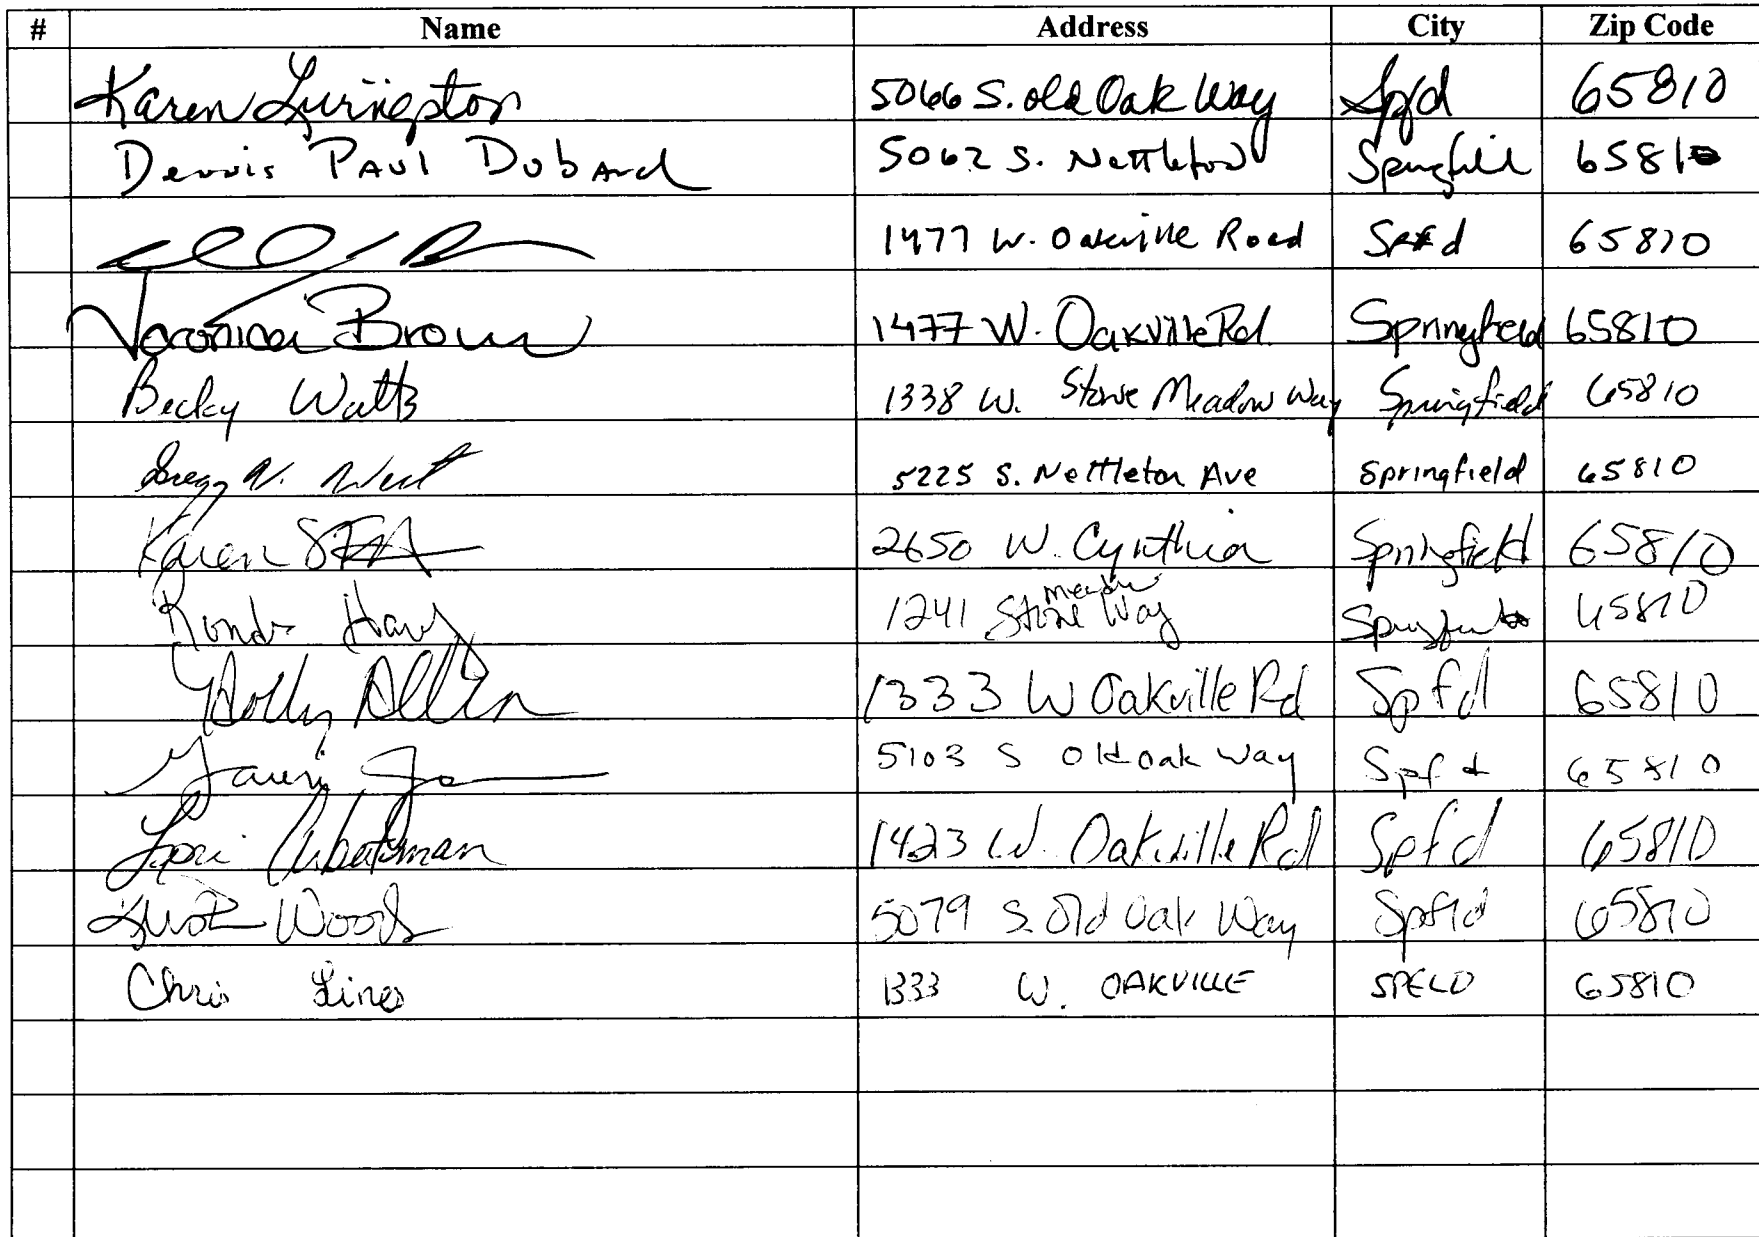 # Name Address City Zip Code
Karen Livingston 5066 S. old Oak Way Spfd 65810
Dennis PAUl DubArd 5062 S. Nettleton Springfield 65810
1477 W. Oakville Road Spfd 65810
Veronica Brown 1477 W. Oakville Rd. Springfield 65810
Becky Watts 1338 W. Stone Meadow Way Springfield 65810
Gregg W. West 5225 S. Nettleton Ave Springfield 65810
Karen 2650 W. Cynthia Springfield 65810
1241 Stone Meadow Way 65810
Holly Allen 1333 W Oakville Rd Spfd 65810
5103 S Old Oak Way Spfd 65810
Lori 1423 W. Oakville Rd Spfd 65810
Woods 5079 S. Old Oak Way Spfld 65810
Chris Lines 1333 W. OAKVILLE SPFLD 65810